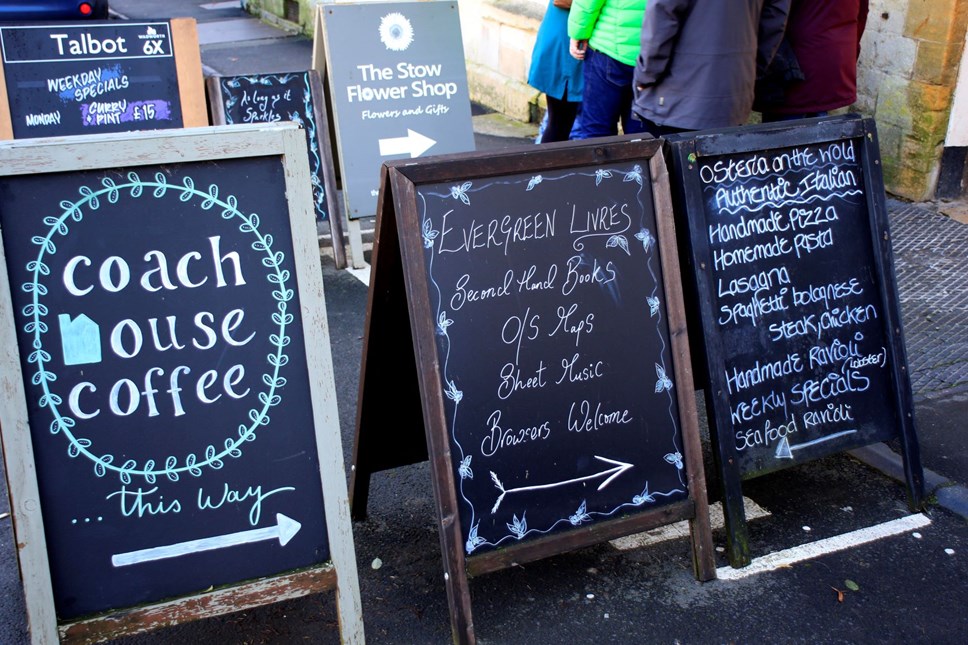 Talbot
WADWORTH
6X
WEEKDAY
SPECIALS
MONDAY
CURRY
PINT
£15
As long as it
Sparkles
The Stow
Flower Shop
Flowers and Gifts
coach
house
coffee
... this Way
EVERGREEN LIVRES
Second Hand Books
O/S Maps
Sheet Music
Browsers Welcome
OSTERIA ON THE WOLD
Authentic Italian
Handmade Pizza
Homemade Pasta
Lasagna
Spaghetti bolognese
Steak, Chicken
Handmade Ravioli
(lobster)
Weekly Specials
Seafood Ravioli